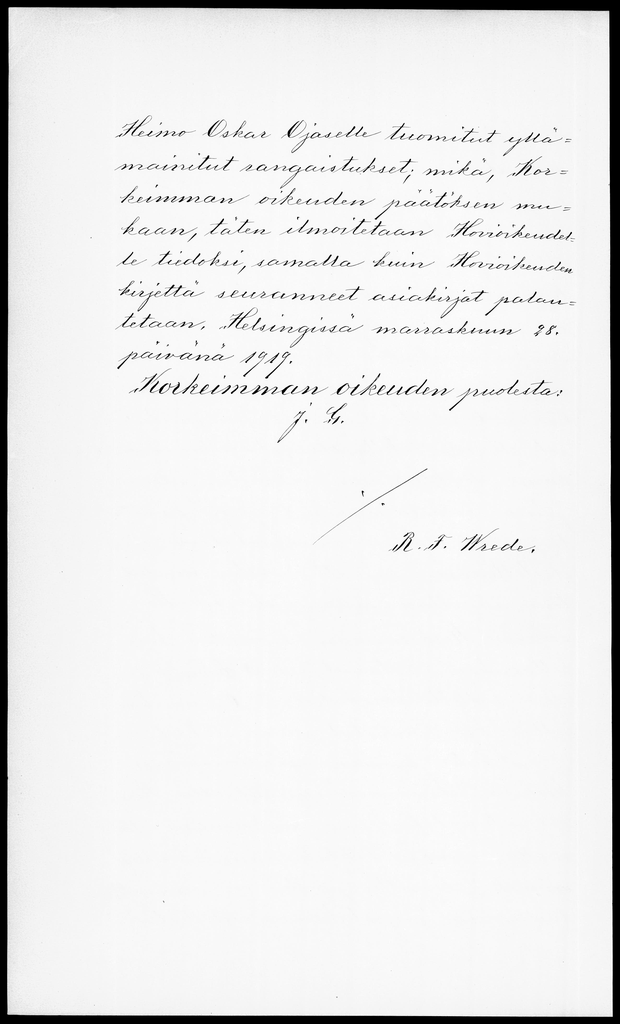 Heimo Oskar Ojaselle tuomitut yllä=
mainitut rangaistukset; mikä, Kor=
keimman oikeuden päätöksen mu=
kaan, täten ilmoitetaan Hovioikeudel=
le tiedoksi, samalla kuin Hovioikeuden
kirjettä seuranneet asiakirjat palau=
tetaan. Helsingissä marraskuun 28.
päivänä 1919.
Korkeimman oikeuden puolesta:
J. G.
./.
R. F. Wrede.